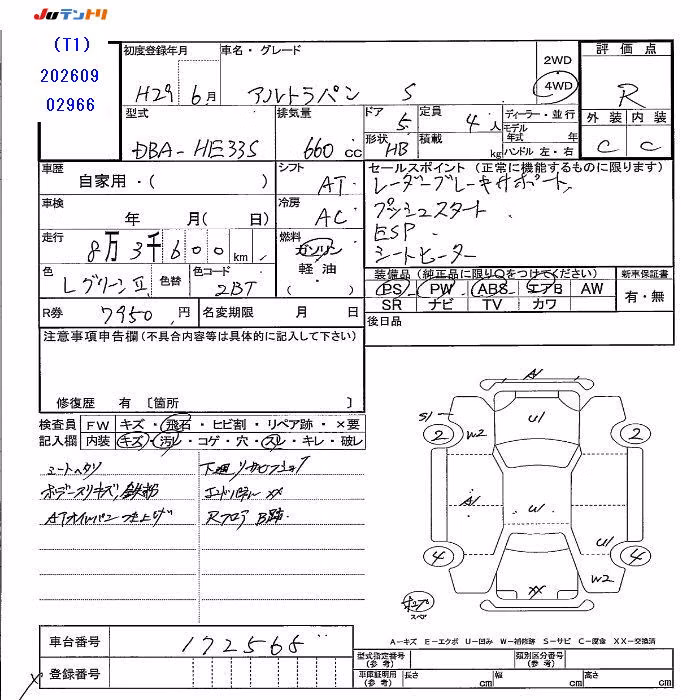 JUテントリ
(T1)
202609
02966
初度登録年月 車名・グレード 2WD 4WD 評価点
H29 6月 アルトラパン S R
型式 排気量 ドア 定員 ディーラー・並行 外装 内装
DBA-HE33S 660cc 5 4人 モデル年式 年 C C
形状 HB 積載 kg ハンドル 左・右
車歴 自家用・( ) シフト AT セールスポイント(正常に機能するものに限ります)
レーダーブレーキサポート
車検 年 月( 日) 冷房 AC プッシュスタート
ESP
走行 8万3千600km 燃料 ガソリン 軽油 ( ・ ) シートヒーター
色 LグリーンⅡ 色替 色コード ZBT
装備品(純正品に限りOをつけてください) 新車保証書
PS PW ABS エアB AW 有・無
SR ナビ TV カワ
R券 7950円 名変期限 月 日 後日品
注意事項申告欄(不具合内容等は具体的に記入して下さい)
修復歴 有〔箇所 〕
検査員 FW キズ・飛石・ヒビ割・リペア跡・×要
記入欄 内装 キズ・汚レ・コゲ・穴・スレ・キレ・破レ
シートヘタリ
ATオイルパン
エンドパネル XX
Rフロア B跡
A U
S1 2 W2 2
A U
U1
4 W2 4
XX
A-キズ E-エクボ U-凹み W-補修跡 S-サビ C-腐食 XX-交換済
車台番号 172565
登録番号
型式指定番号(参考) 類別区分番号(参考)
車庫証明用(参考) 長さ cm 幅 cm 高さ cm